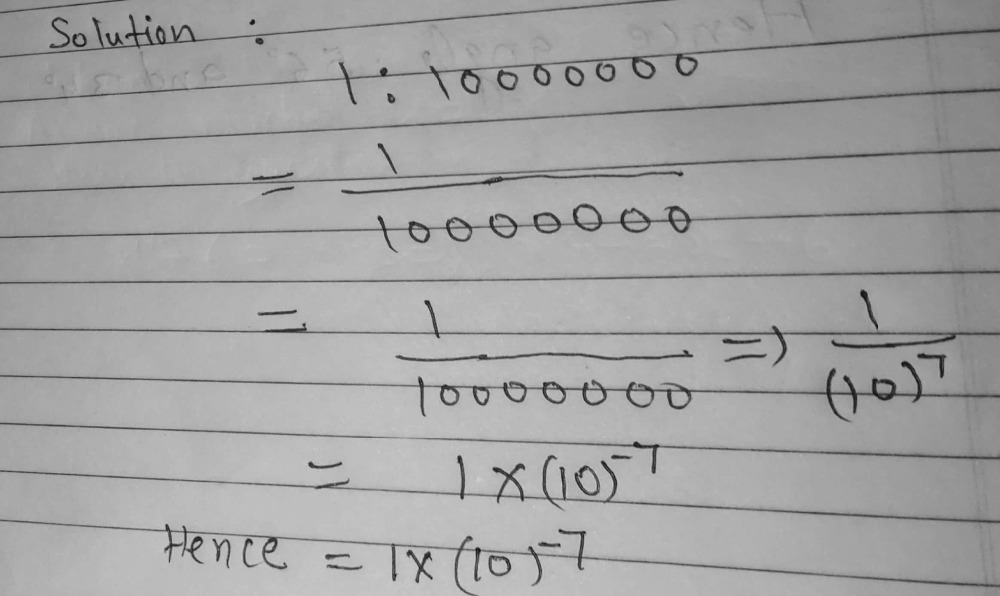 Solution :
1 : 10000000
= 1/10000000
= 1/10000000 => 1/(10)⁷
= 1 × (10)⁻⁷
Hence = 1× (10)⁻⁷